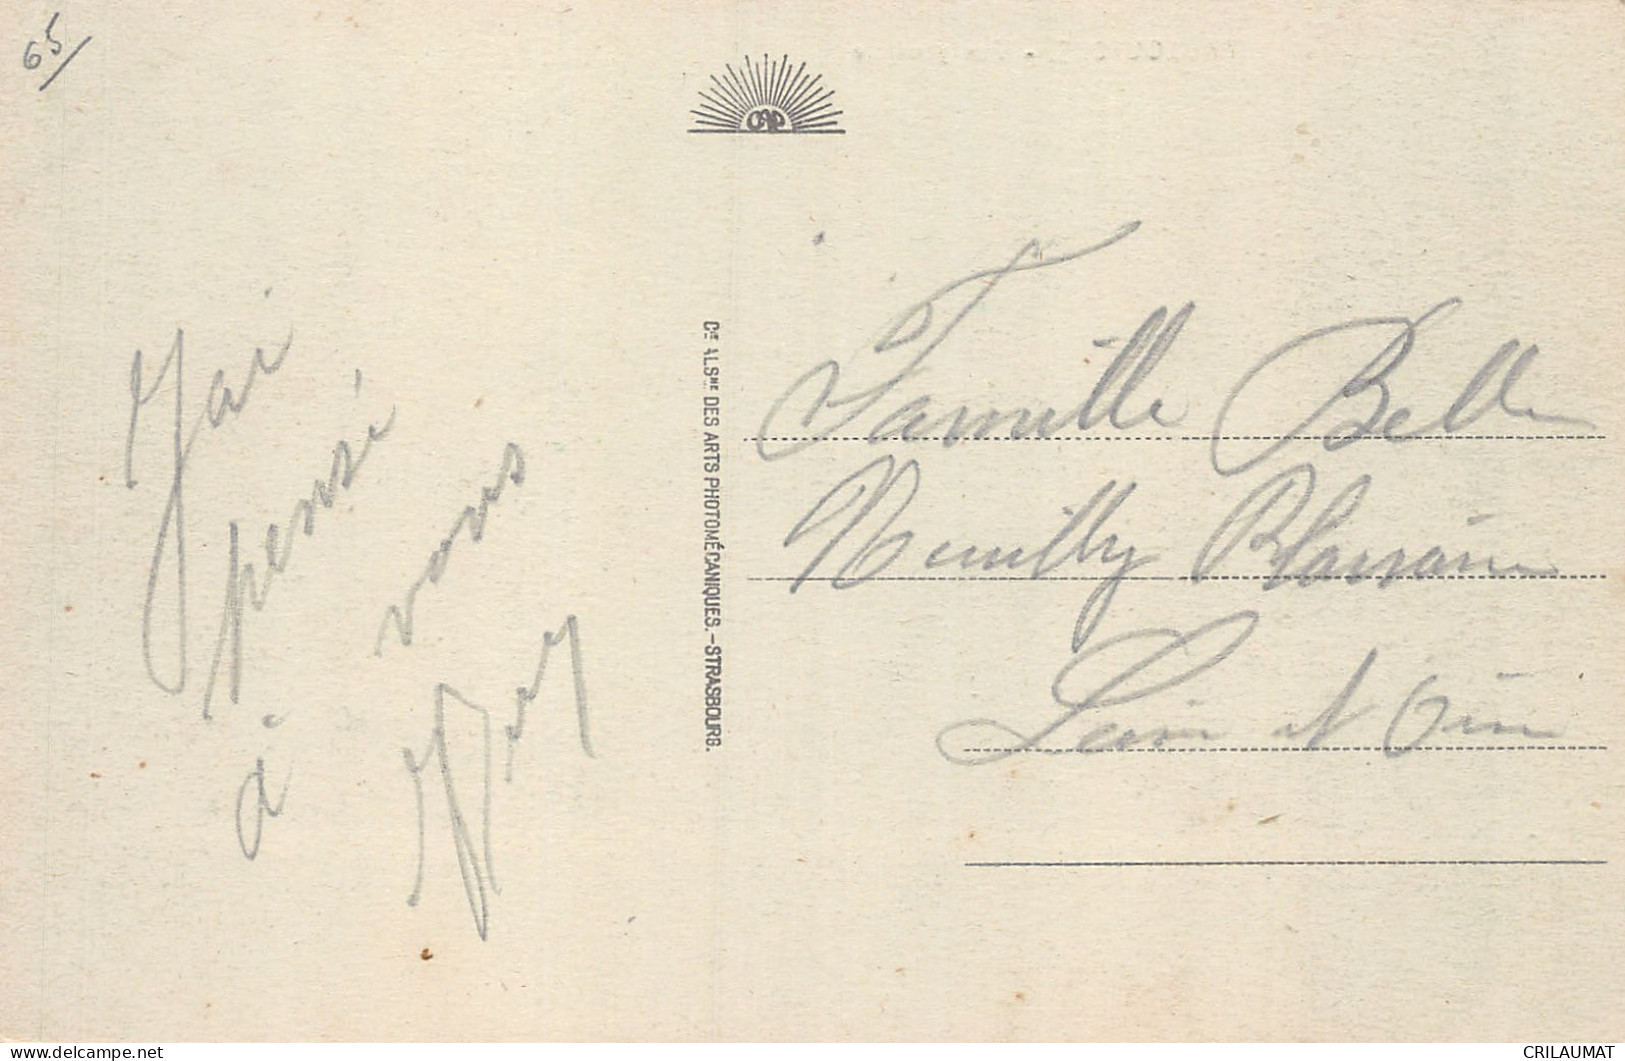 65
CAP
J'ai
pensé
à vous
Cie ALSNE DES ARTS PHOTOMÉCANIQUES.-STRASBOURG.
Famille Belle
Neuilly Plaisance
Seine et Oise
delcampe.net
CRILAUMAT